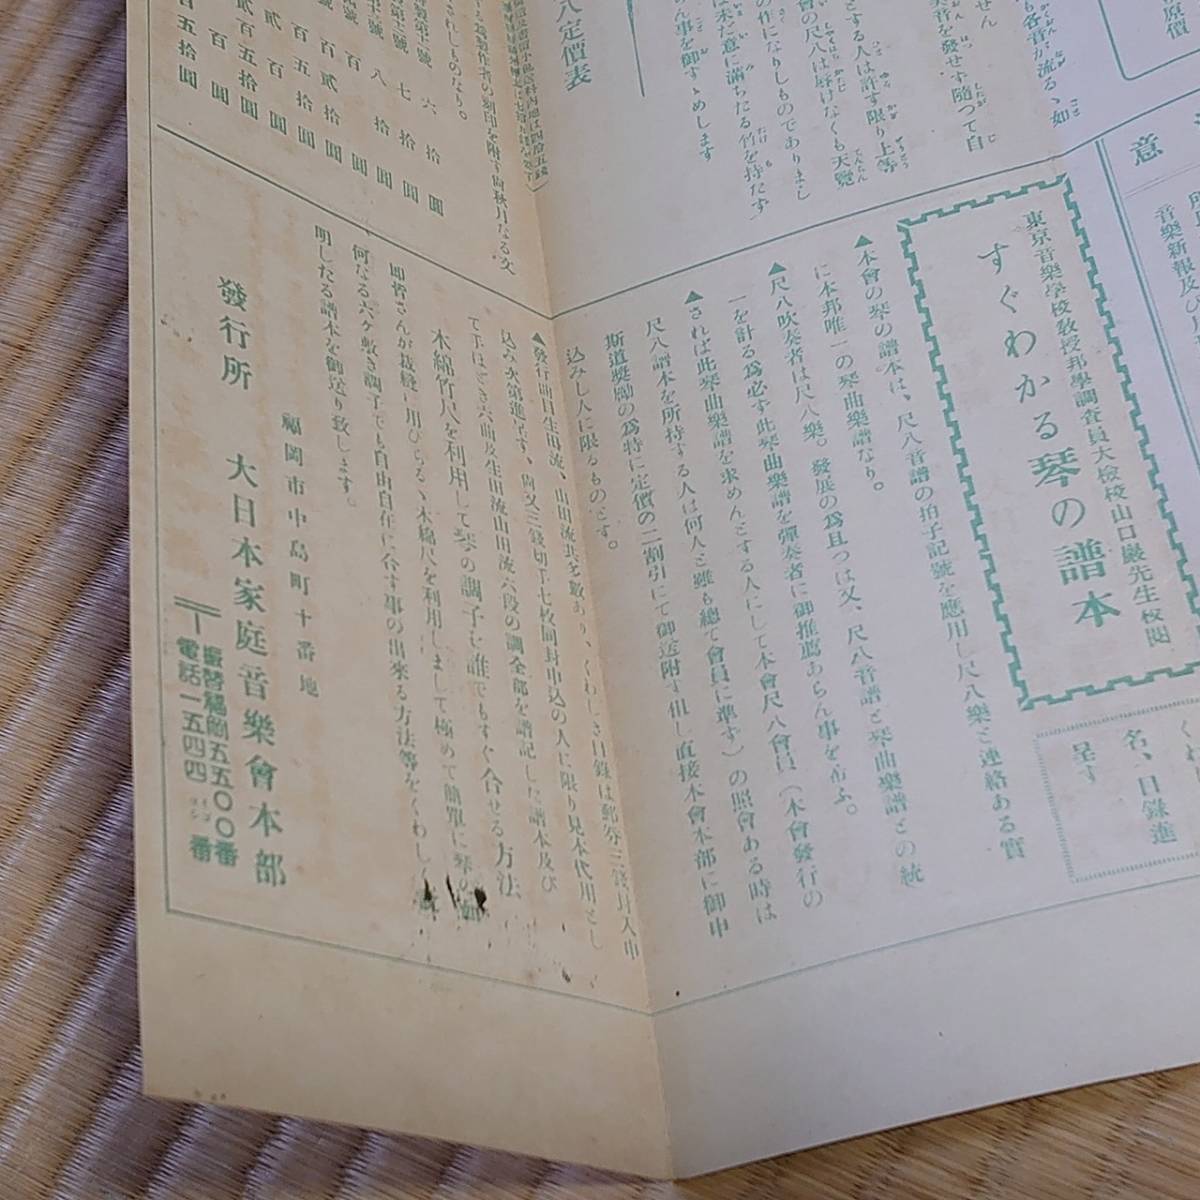 意
音樂新報及
も各音が流るゝ如
せん
美音を發せず隨つて自
とする人は許す限り上等
會の尺八は辱けなくも天覽
の作になりしものでありまし
は未だ意に滿ちたる竹を持たず
ん事を御すゝめします
八定價表
製作者の刻印を附す
されしものなり。
六拾圓
七拾圓
八拾圓
百圓
百貳拾圓
百五拾圓
貳百圓
貳百五拾圓
東京音樂學校敎授邦樂調査員大檢校山口巖先生校閱
すぐわかる琴の譜本
名、目錄進
呈す
▲本會の琴の譜本は、尺八音譜の拍子記號を應用し尺八樂と連絡ある實
に本邦唯一の琴曲樂譜なり。
▲尺八吹奏者は尺八樂。發展の爲且つは又、尺八音譜と琴曲樂譜との統
一を計る爲必ず此琴曲樂譜を彈奏者に御推薦あらん事を乞ふ。
▲されば此琴曲樂譜を求めんとする人にして本會尺八會員(本會發行の
尺八譜本を所持する人は何人と雖も總て會員に準ず)の照會ある時は
斯道奬勵の爲特に定價の二割引にて御送附す但し直接本會本部に御申
込みし人に限るものとす。
▲發行曲目生田流、山田流共多數あり、くわしき目錄は郵券三錢封入申
込み次第進呈す、尙又三錢切手七枚同封申込の人に限り見本代用とし
て手ほどき六曲及生田流山田流六段の調全部を譜記した譜本及び
木綿竹尺を利用して琴の調子を誰でもすぐ合せる方法
卽皆さんが裁縫に用ひらるゝ木綿尺を利用しまして極めて簡單に琴の
何なる六ヶ敷き調子でも自由自在に合す事の出來る方法等をくわしく
明したる譜本を御送り致します。
福岡市中島町十番地
發行所 大日本家庭音樂會本部
振替福岡五五〇〇番
電話一五四四番